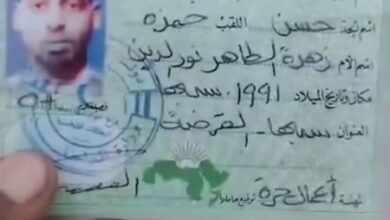 اسم الجد حسن اللقب حمزه
اسم الأم زهرة الطاهر نور الدين
مكان وتاريخ الميلاد 1991. سبها
العنوان سبها - القرضة
المهنة أعمال حرة توقيع حاملها